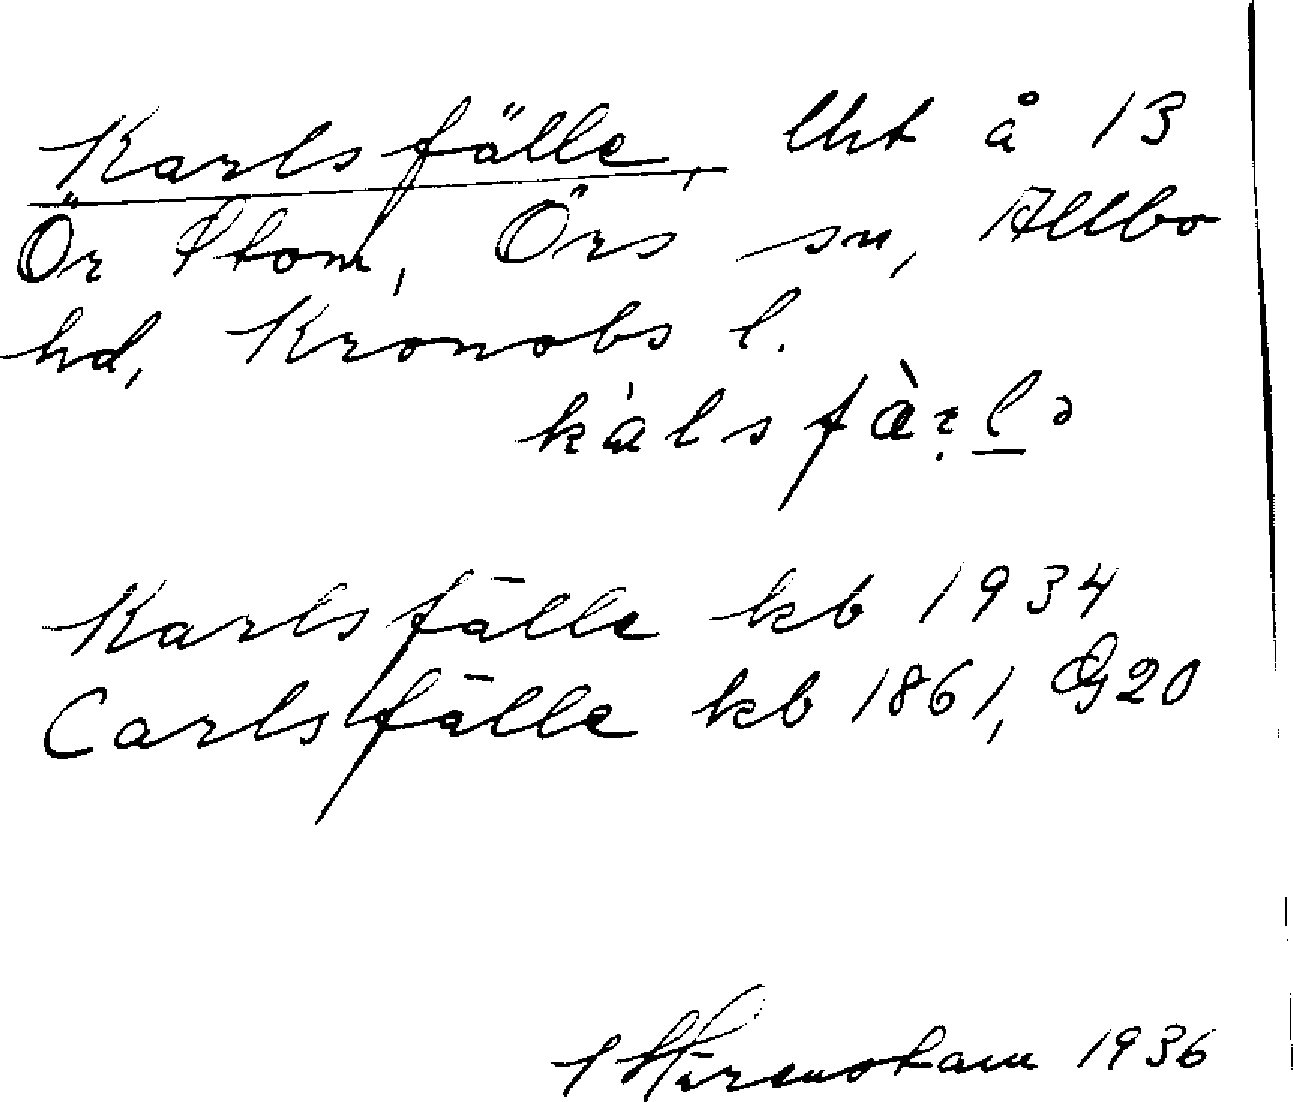 Karlsfälle, lht å 13
Ör Stom, Örs sn, Allbo
hd, Kronobs l.
Karlsfälle kb 1934
Carlsfälle kb 1861, GG20
1936